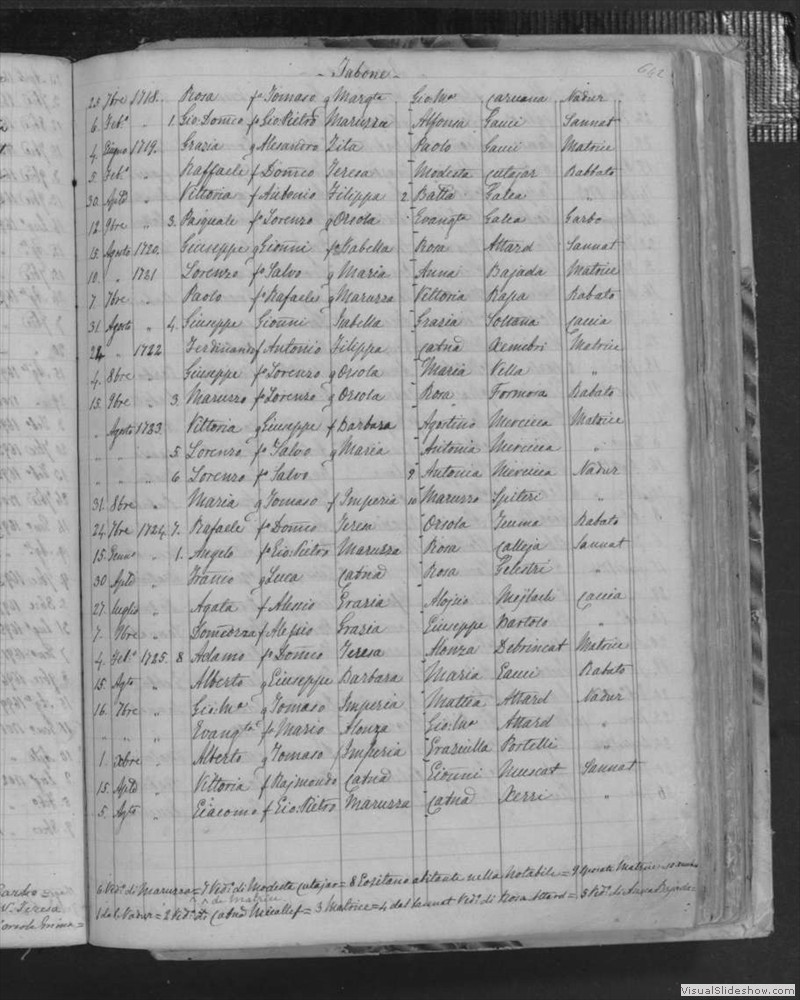 - Tabone -
642
23 7bre 1718. Rosa fo Tomaso q Margta Gio:Ma caruana Nadur
6 Feb.o " 1. Gio:Domco fo Gio:Pietro Maruzza Alfonsa Gauci Sannat
4 Giugno 1719. Grazia q Alesandro Zita Paolo Gauci Matrice
5 Feb.o " Raffaele f Domco Teresa Modesta cutajar Rabbato
30 Aple " Vittoria f Antonio Filippa 2 Batta Galea "
12 9bre " 3. Pasquale fo Lorenzo q Orsola Evangta Galea Garbo
15 Agosto 1720. Giuseppe q Gionni fo Isabella Rosa Attard Sannat
10 " 1721 Lorenzo fo Salvo q Maria Anna Bajada Matrice
7 7bre " Paolo fo Rafaele q Maruzza Vittoria Rapa Rabato
31 Agosto " 4. Giuseppe Gionni Isabella Grazia Soltana caccia
24 " 1722 Ferdinando f Antonio Filippa catnd Axembri Matrice
4. 8bre " Giuseppe fo Lorenzo q Orsola Maria Vella "
15. 9bre " 3 Maruzzo fo Lorenzo q Orsola Rosa Formosa Rabato
" Agosto 1723. Vittoria q Giuseppe f Barbara Agostino Mercieca Matrice
" " " 5 Lorenzo fo Salvo q Maria Antonia Mercieca "
" " " 6 Lorenzo fo Salvo 9 Antonia Mercieca Nadur
31. 8bre " Maria q Tomaso f Imperia 10 Maruzzo Spiteri "
24. 7bre 1724. 7. Rafaele fo Domco Teresa Orsola Rabato
15. Genno " 1. Angelo fo Gio:Pietro Maruzza Rosa calleja Sannat
30 Aple " Franco q Luca Catnd Rosa "
27 Luglio " Agata f Alesio Grazia Aloisio Mejlach caccia
7. 9bre " f Alessio Grazia Giuseppe Bartolo "
4. Feb.o 1725. 8 Adamo fo Domco Teresa Alonza Debrincat Matrice
15. Agto " Alberto q Giuseppe Barbara Maria Gauci Rabato
16. 7bre " Gio:Ma q Tomaso Imperia Mattea Attard Nadur
" " " Evangta fo Mario Alonza Gio:Ma Attard "
1. Xbre " Alberto q Tomaso f Imperia Graziulla Portelli "
15. Aple " Vittoria f Rajmondo Catnd Gionni Muscat Sannat
5. Agto " Giacomo f Gio:Pietro Maruzza Catnd Xerri "
6 Ved.o di Maruzza = 7 Ved.o di Modesta cutajar = 8 Positano abitante nella Notabile = 9 Matrice
1 dal Nadur = 2 Ved.o di Catnd Micallef = 3 Matrice = 4 dal Sannat Ved.o di Rosa Attard = 5 Ved.o di Anna Bajada =
Teresa